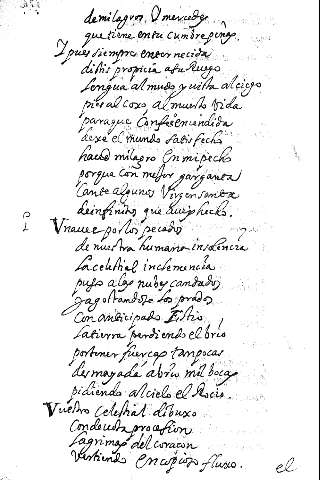 de milagros. O mercedes
que tiene en tu cumbre peña,
I pues siempre enternecida
distis propicia a su Ruego
lengua al mudo, y vista al ciego
pies al coxo, al muerto vida
para que
dexe el mundo satisfecho
haced milagro en mi pecho
porque con mejor garganta
cante algunos Virgen santa
de infinitos que aueis hecho.
Vna uez por los pecados
de nuestra humana insolencia
la celestial inclemencia
puso a las nubes candados
y agostandose los prados
con anticipado Estio
la tierra perdiendo el brio
por tener fuerças tan pocas
desmayada abrio mil bocas
pidiendo al cielo el Rocio.
Vuestro celestial dibuxo
con deuota procession
lagrimas del coracon
vertiendo en copioso fluxo.
el